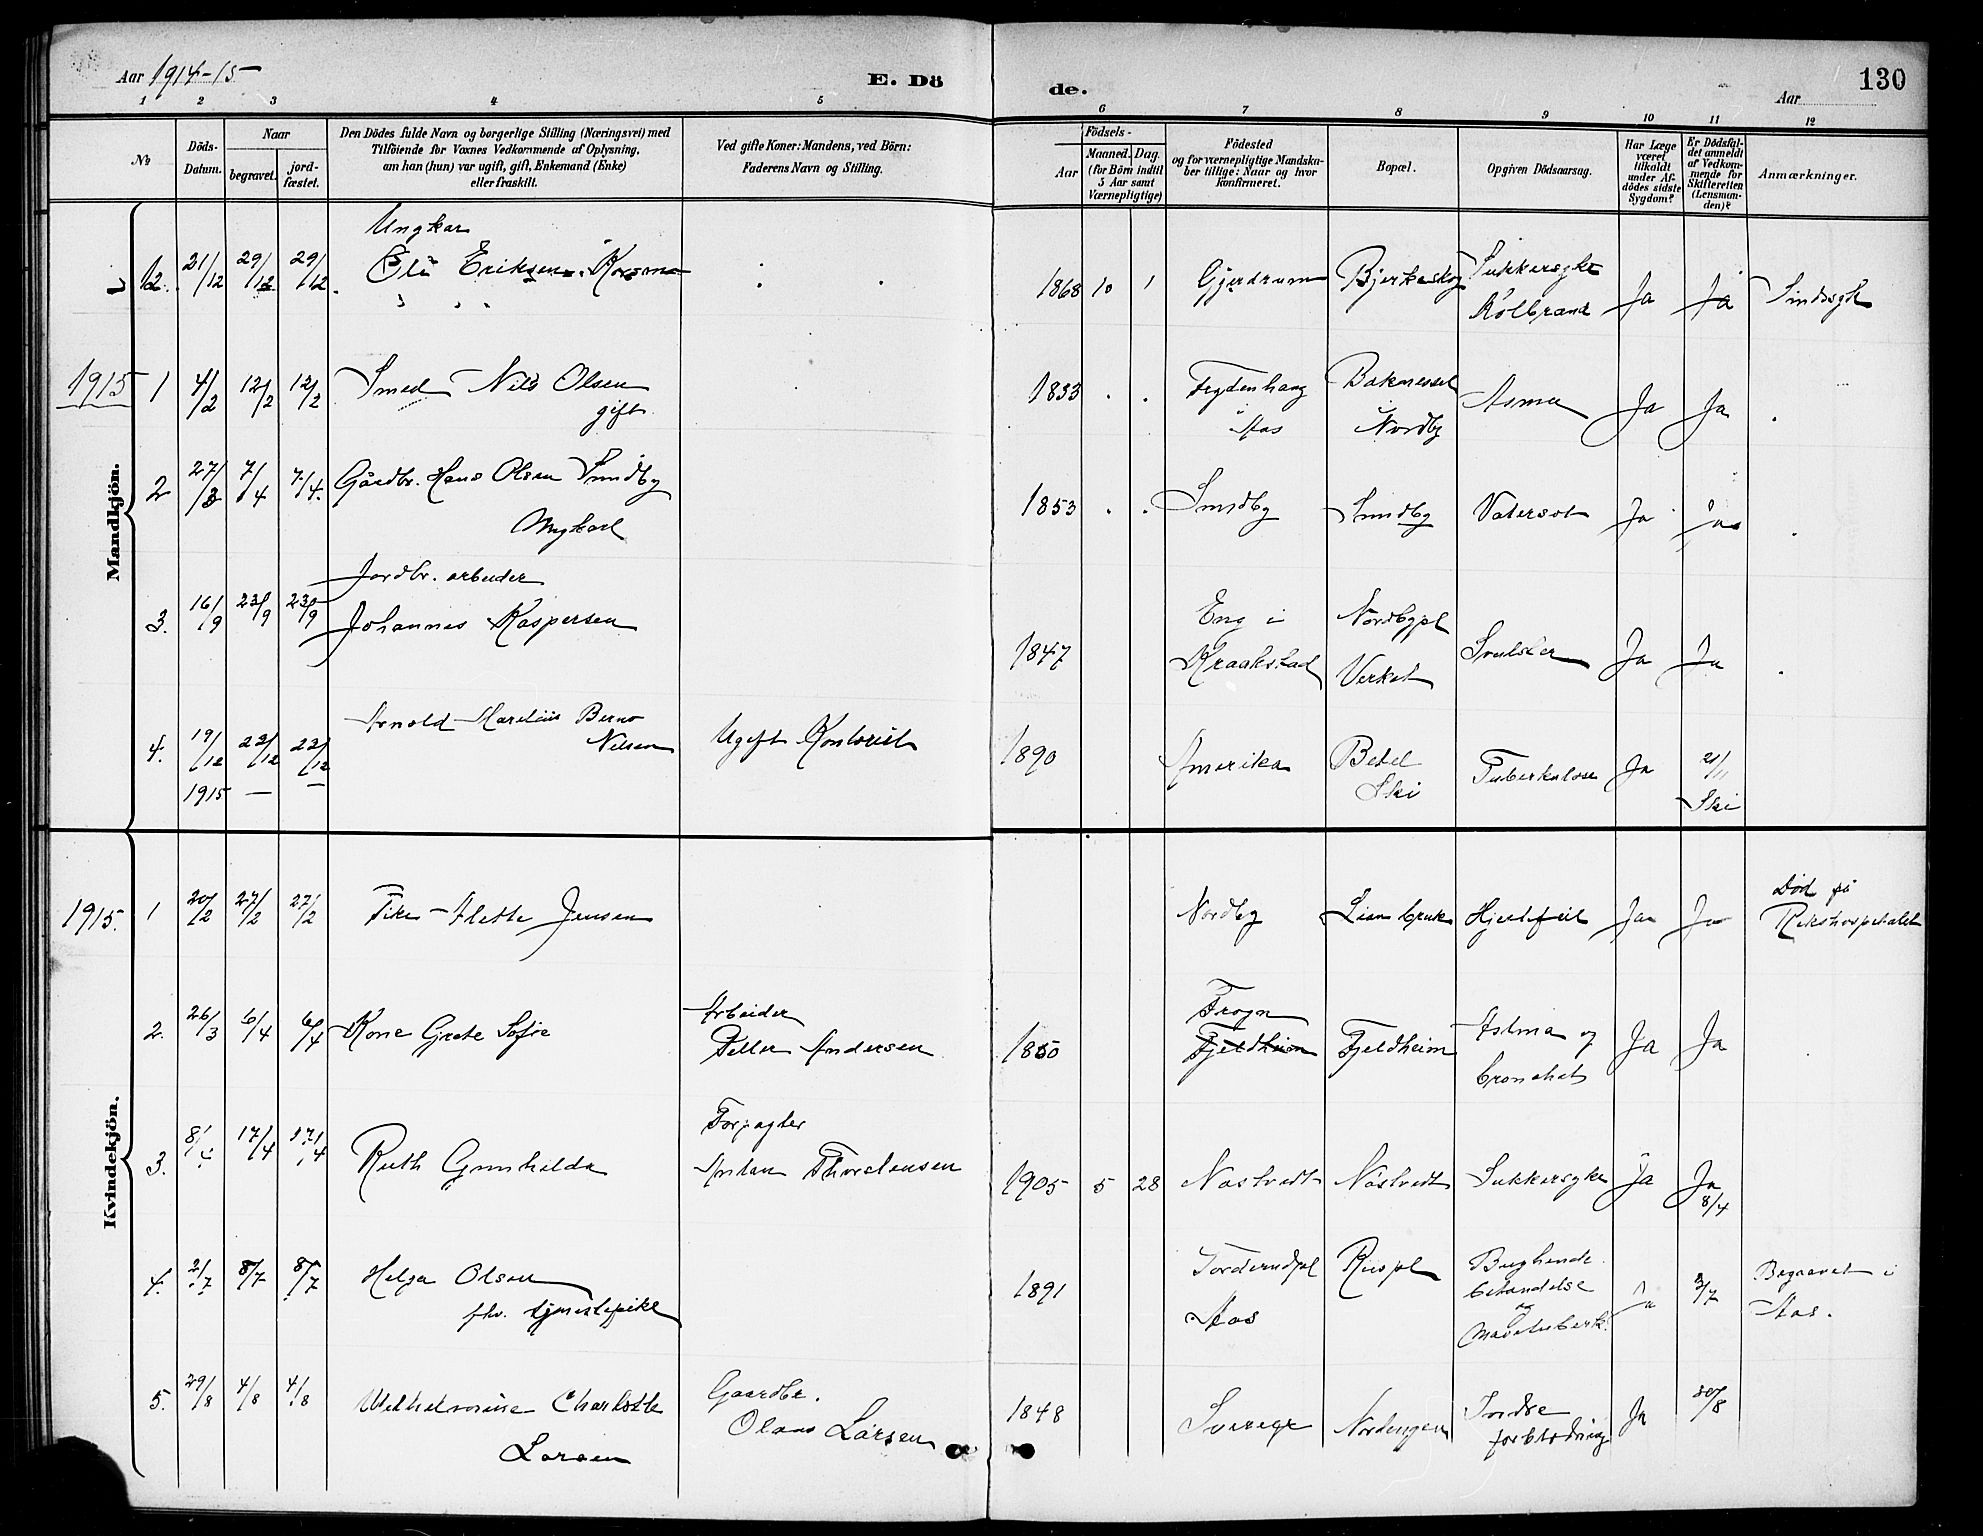 Aar 1914-15
E. Dö
de.
Aar
130
1 2 3 4 5 6 7 8 9 10 11 12
No
Döds-Datum.
Naar
begravet.
jord-fæstet.
Den Dödes fulde Navn og borgerlige Stilling (Næringsvei) med
Tilföiende for Voxnes Vedkommende af Oplysning,
om han (hun) var ugift, gift, Enkemand (Enke)
eller fraskilt.
Ved gifte Koner: Mandens, ved Börn:
Faderens Navn og Stilling.
Födsels-
Aar
Maaned. Dag.
(for Börn indtil
5 Aar samt
Værnepligtige)
Födested
og for værnepligtige Mandska-
ber tillige: Naar og hvor
konfirmeret.
Bopæl.
Opgiven Dödsaarsag.
Har Læge
været
tilkaldt
under Af-
dödes sidste
Sygdom?
Er Dödsfal-
det anmeldt
af Vedkom-
mende for
Skifteretten
(Lensman-
den)?
Anmærkninger.
Mandkjön.
Ungkar
12. 21/12 29/12 29/12 Ole Eriksen 1868 10 1 Gjerdrum Bjerkeskog Sukkersyke Ja Ja Sindssyk
Kolbrand
1915 1 4/2 12/2 12/2 Smed Nils Olsen 1833 Asma Ja Ja
gift Aas Nordby
2 27/3 7/4 7/4. Gårdbr. Hans Olsen Sundby 1853 Sundby Sundby Vatersot Ja ja
Ungkarl
Jordbr. arbeider
3. 16/9 23/9 23/9 Johannes Kaspersen 1847 Eng i Nordbypl Ja Ja
Kraakstad Verket
4. 19/12 22/12 22/12 Arnold Marelius
Nilsen Ugift Kontorist 1890 Amerika Betel Tuberkulose Ja 21/11
1915 — — Ski Ski
Kvindekjön.
1915. 1 20/2 27/2 27/2 Pike Alette Jensen Nordby Lian bruk Hjertefeil Ja Ja Död på
Rikshospitalet
2. 26/3 6/4 6/4 Kone Grete Sofie Arbeider 1850 Frogn Fjeldheim Astma og Ja Ja
Petter Andersen Fjeldheim bronchit
3. 8/4 17/4 17/4 Ruth Gunhilda Forpagter
Anton Thorstensen 1905 5 28 Nøstvedt Nöstvedt Sukkersyke Ja Ja
8/4
4. 2/7 8/7 8/7 Helga Olsen 1891 Riispl Bughinde ja 3/7 Begravet i
fhv. tjenestepike Aas betændelse Aas.
og
Mavetuberk.
5. 29/8 4/8 4/8 Wilhelmine Charlotte Gaardbr. 1848 Sverige Nordengen Indre Ja 30/8
Larsen Olaus Larsen forblødning